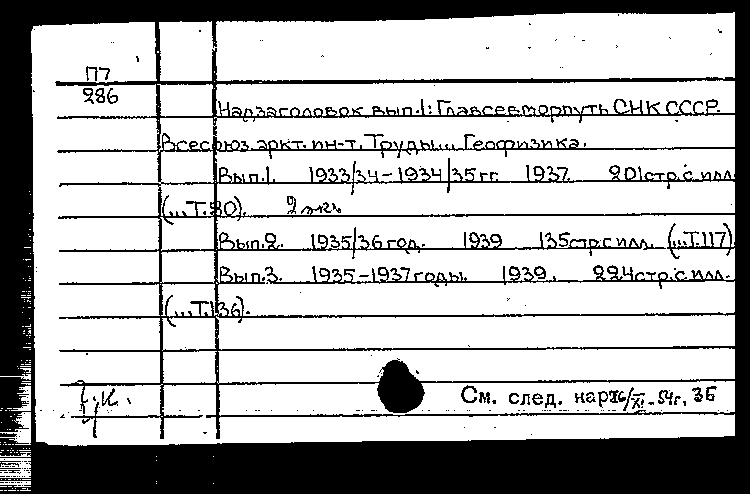 П7
286
Надзаголовок вып.1: Главсевморпуть СНК СССР.
Всесоюз. аркт. ин-т. Труды... Геофизика.
Вып.1. 1933/34-1934/35гг. 1937. 201стр.с илл.
(...Т.80). 2 экз.
Вып.2. 1935/36 год. 1939 135стр.с илл. (...Т.117)
Вып.3. 1935-1937 годы. 1939. 224стр.с илл.
(...Т.136).
См. след. кар 26/XI-54г.